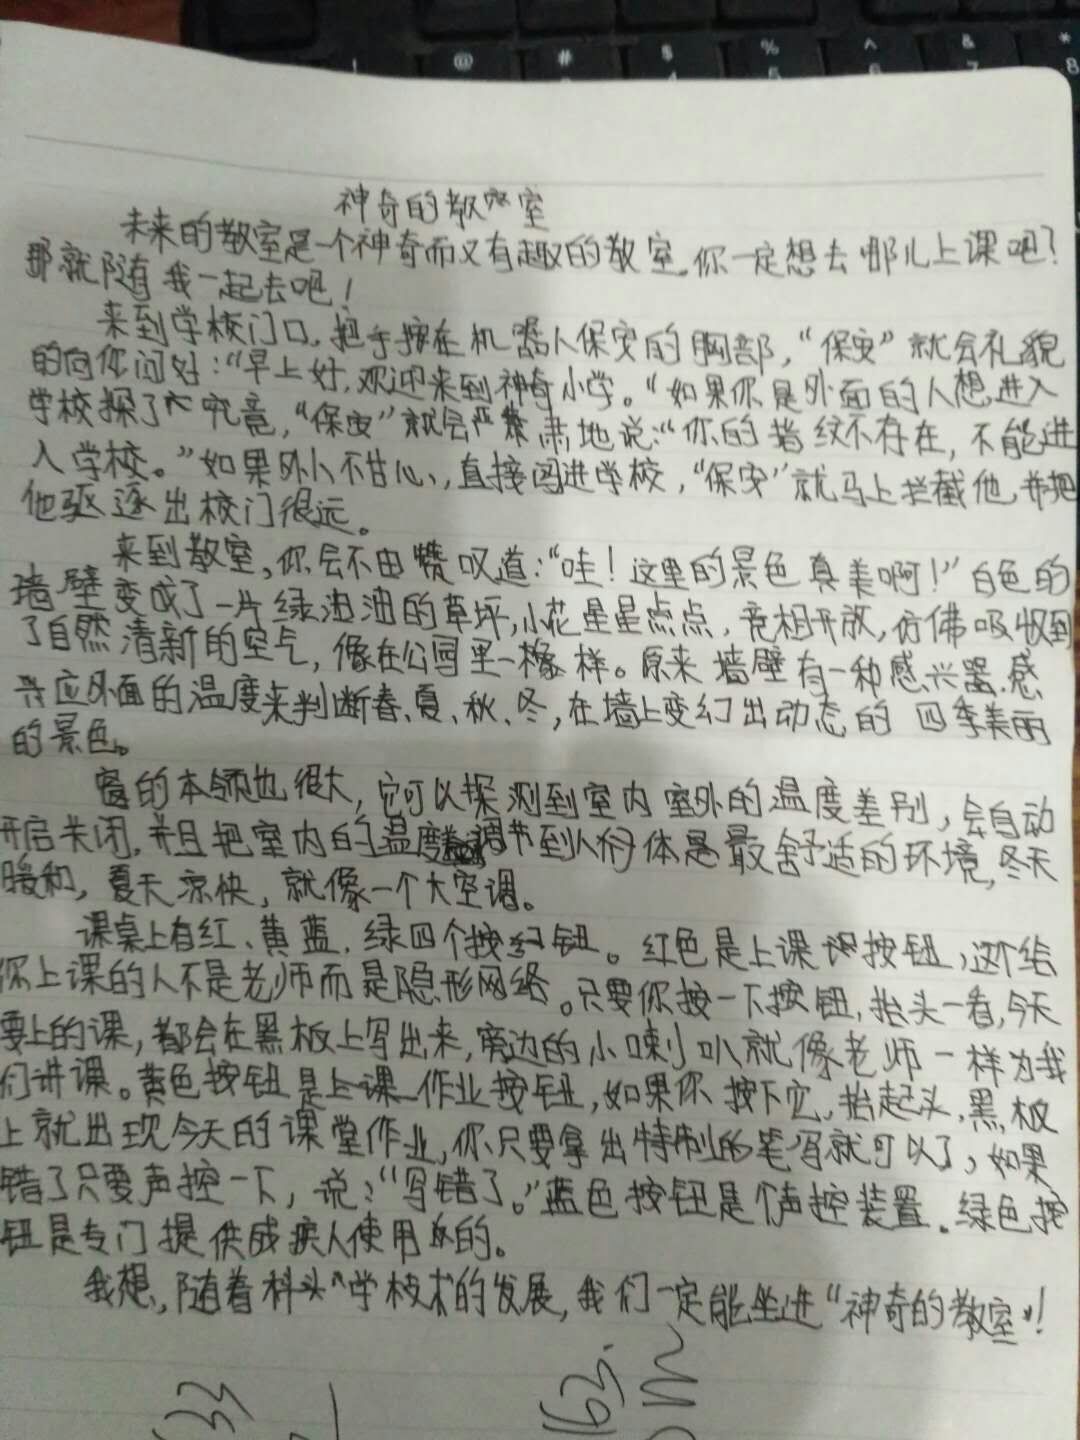 @ # $ % ^ & *
4 5 6 7 8
神奇的教室
未来的教室是一个神奇而又有趣的教室。你一定想去哪儿上课吧?
那就随我一起去吧!
来到学校门口,把手按在机器人保安的胸部,“保安”就会礼貌
的向你问好:“早上好,欢迎来到神奇小学。“如果你是外面的人想进入
学校探个究竟,“保安”就会严肃地说:“你的指纹不存在,不能进
入学校。”如果外人不甘心,直接闯进学校,“保安”就马上拦截他,并把
他驱逐出校门很远。
来到教室,你会不由赞叹道:“哇!这里的景色真美啊!”白色的
墙壁变成了一片绿油油的草坪,小花星星点点,竞相开放,仿佛吸收到
了自然清新的空气,像在公园里一样。原来墙壁有一种感兴器,感
应外面的温度来判断春、夏、秋、冬,在墙上变幻出动态的四季美丽
的景色。
窗的本领也很大,它可以探测到室内室外的温度差别,会自动
开启关闭,并且把室内的温度调节到人的体是最舒适的环境,冬天
暖和,夏天凉快,就像一个大空调。
课桌上有红、黄蓝、绿四个按钮。红色是上课按钮,这个给
你上课的人不是老师而是隐形网络。只要你按一下按钮,抬头一看,今天
要上的课,都会在黑板上写出来,旁边的小喇叭就像老师一样为我
们讲课。黄色按钮是上课作业按钮,如果你按下它,抬起头,黑板
上就出现今天的课堂作业,你只要拿出特制的笔写就可以了,如果
错了只要声控一下,说:“写错了。”蓝色按钮是个声控装置。绿色按
钮是专门提供残疾人使用的。
我想,随着科学技术的发展,我们一定能坐进“神奇的教室”!
33
163.